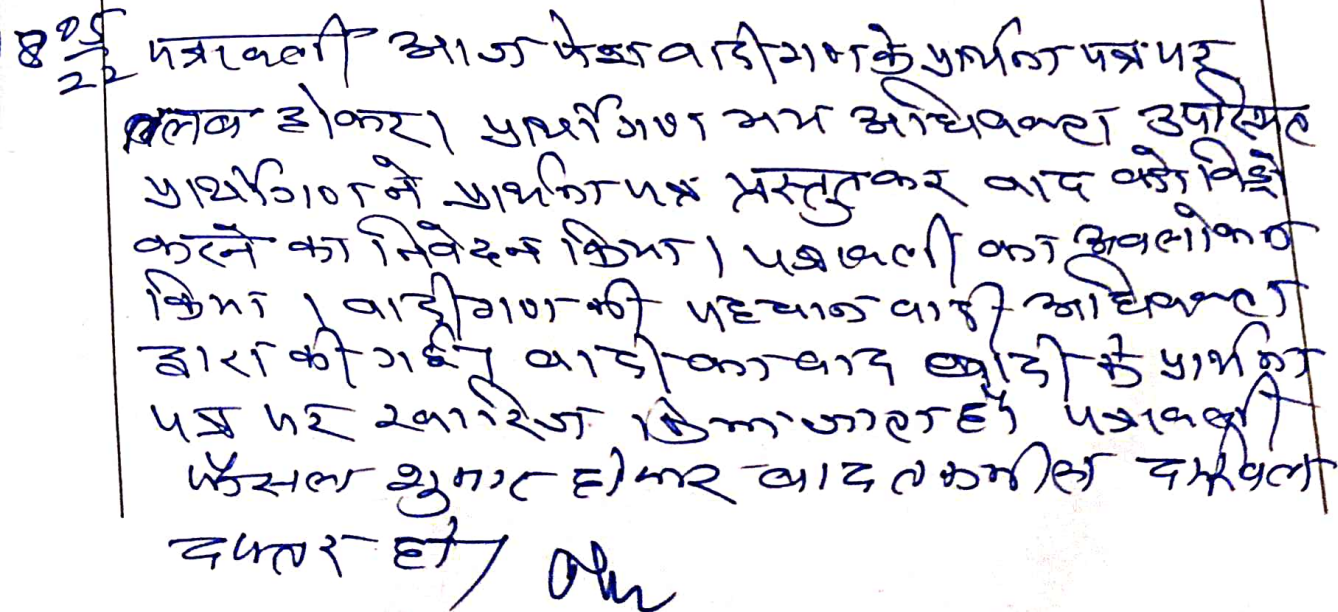 8 05/22 पत्रावली आज पेश वादीगण के प्रार्थना पत्र पर
तलब होकर। प्रार्थीगण मय अधिवक्ता उपस्थित
प्रार्थीगण ने प्रार्थना पत्र प्रस्तुत कर वाद को विड्रो
करने का निवेदन किया। पत्रावली का अवलोकन
किया। वादीगण की पहचान वादी अधिवक्ता
द्वारा की गई। वादी का वाद वादी के प्रार्थना
पत्र पर खारिज किया जाता है। पत्रावली
फैसला शुमार होकर बाद तकमील दाखिल
दफ्तर हो।